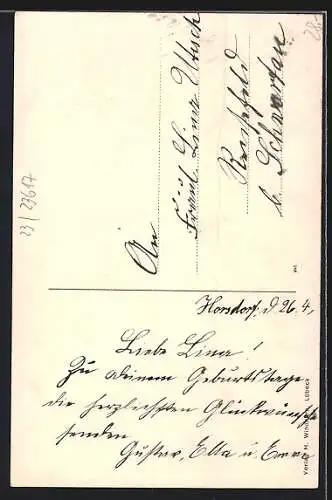 An
Fräul. Lina Utech
Ratekau
b. Schwartau
Horsdorf, d. 26. 4.
Liebe Lina!
Zu deinem Geburtstage
die herzlichsten Glückwünsche
senden
Gustav, Ella u. Emma
Verlag H. Lübeck
23/23617